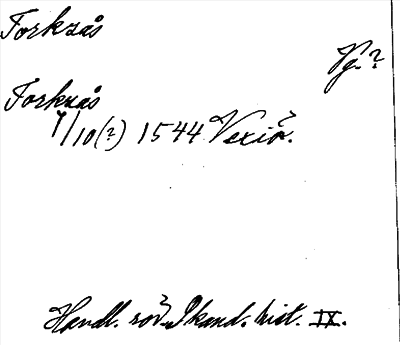 Torksås
Vg. ?
Torksås
7/10(?) 1544 Vexiö.
Handl. rör. Skand. hist. IX.